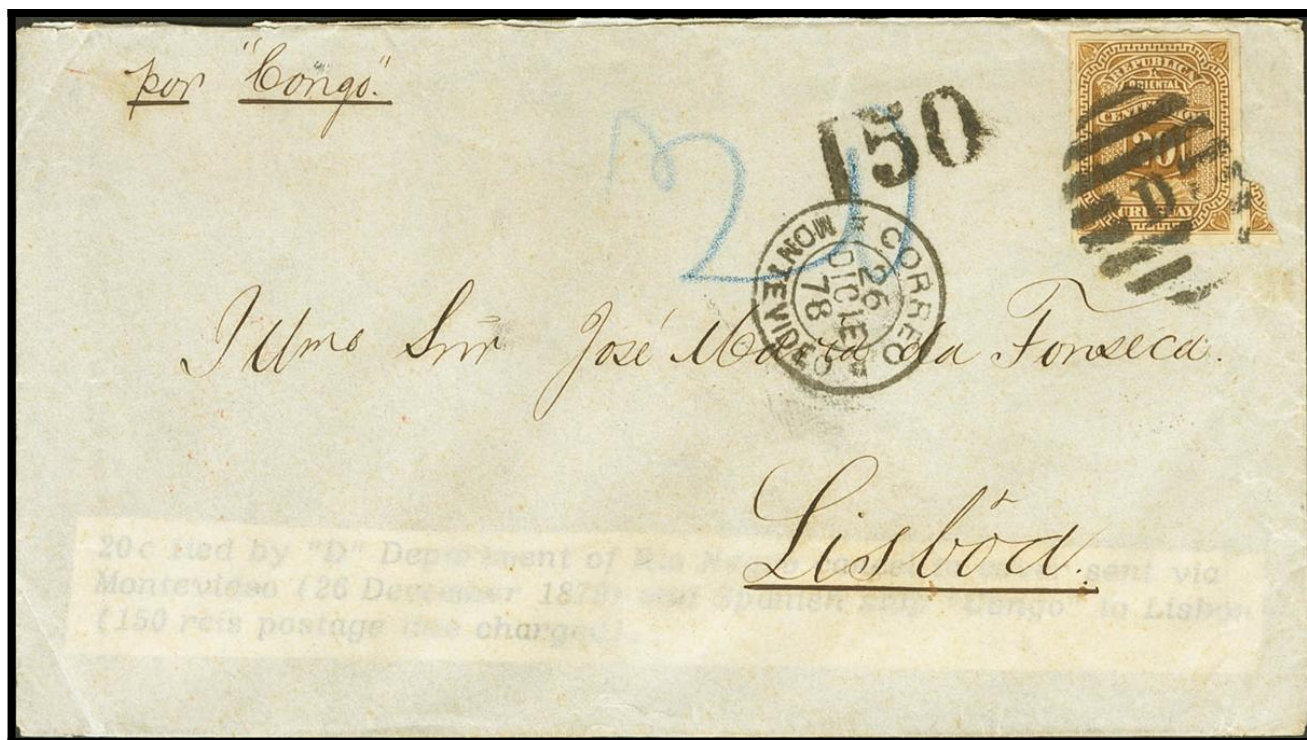 por "Congo."
150
REPUBLICA
ORIENTAL
CENTECIMOS
20
URUGUAY
D
CORREO
26
DICIE
78
MONTEVIDEO
Illmo Snr José Maria da Fonseca.
Lisbôa.
20c tied by "D" Department of sent via
Montevideo (26 December 1878) Spanish ship "Congo" to Lisbon
(150 reis postage due charged).